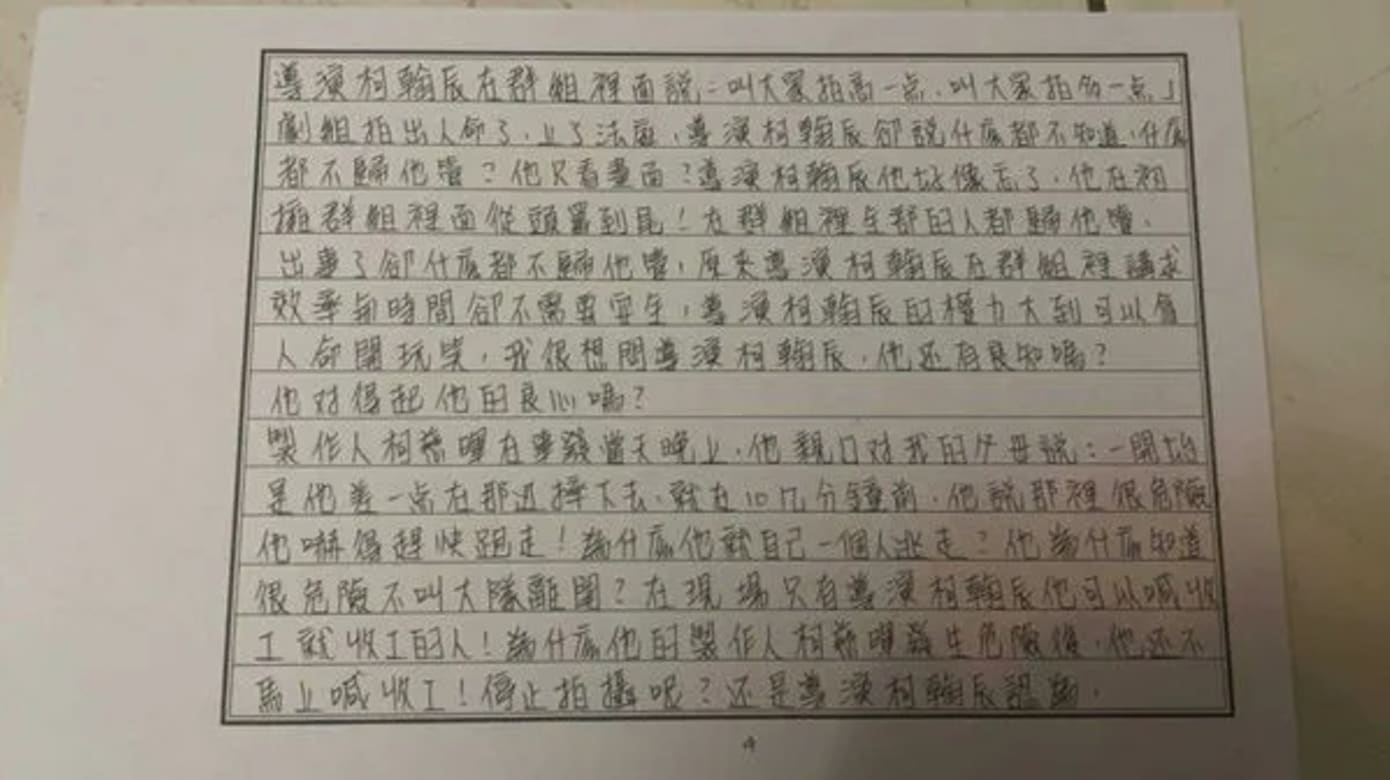 導演柯翰辰在群組裡面說：叫大家拍高一点，叫大家拍多一点」
劇組拍出人命了，上了法庭，導演柯翰辰卻說什麼都不知道，什麼
都不歸他管？他只看畫面？導演柯翰辰他好像忘了，他在拍
攝群組裡面從頭罵到尾！在群組裡全部的人都歸他管，
出事了卻什麼都不歸他管，原來導演柯翰辰在群組裡講求
效率与時間卻不需要安全，導演柯翰辰的權力大到可以拿
人命開玩笑，我很想問導演柯翰辰，他还有良知嗎？
他对得起他的良心嗎？
製作人柯在事發當天晚上，他親口对我的父母說：一開始
是他差一点在那边摔下去，就在10几分鐘前，他說那裡很危險
他嚇得趕快跑走！為什麼他就自己一個人逃走？他為什麼知道
很危險不叫大隊離開？在現場只有導演柯翰辰他可以喊收
工就收工的人！為什麼他的製作人柯發生危險後，他还不
馬上喊收工！停止拍攝呢？还是導演柯翰辰認為，
4